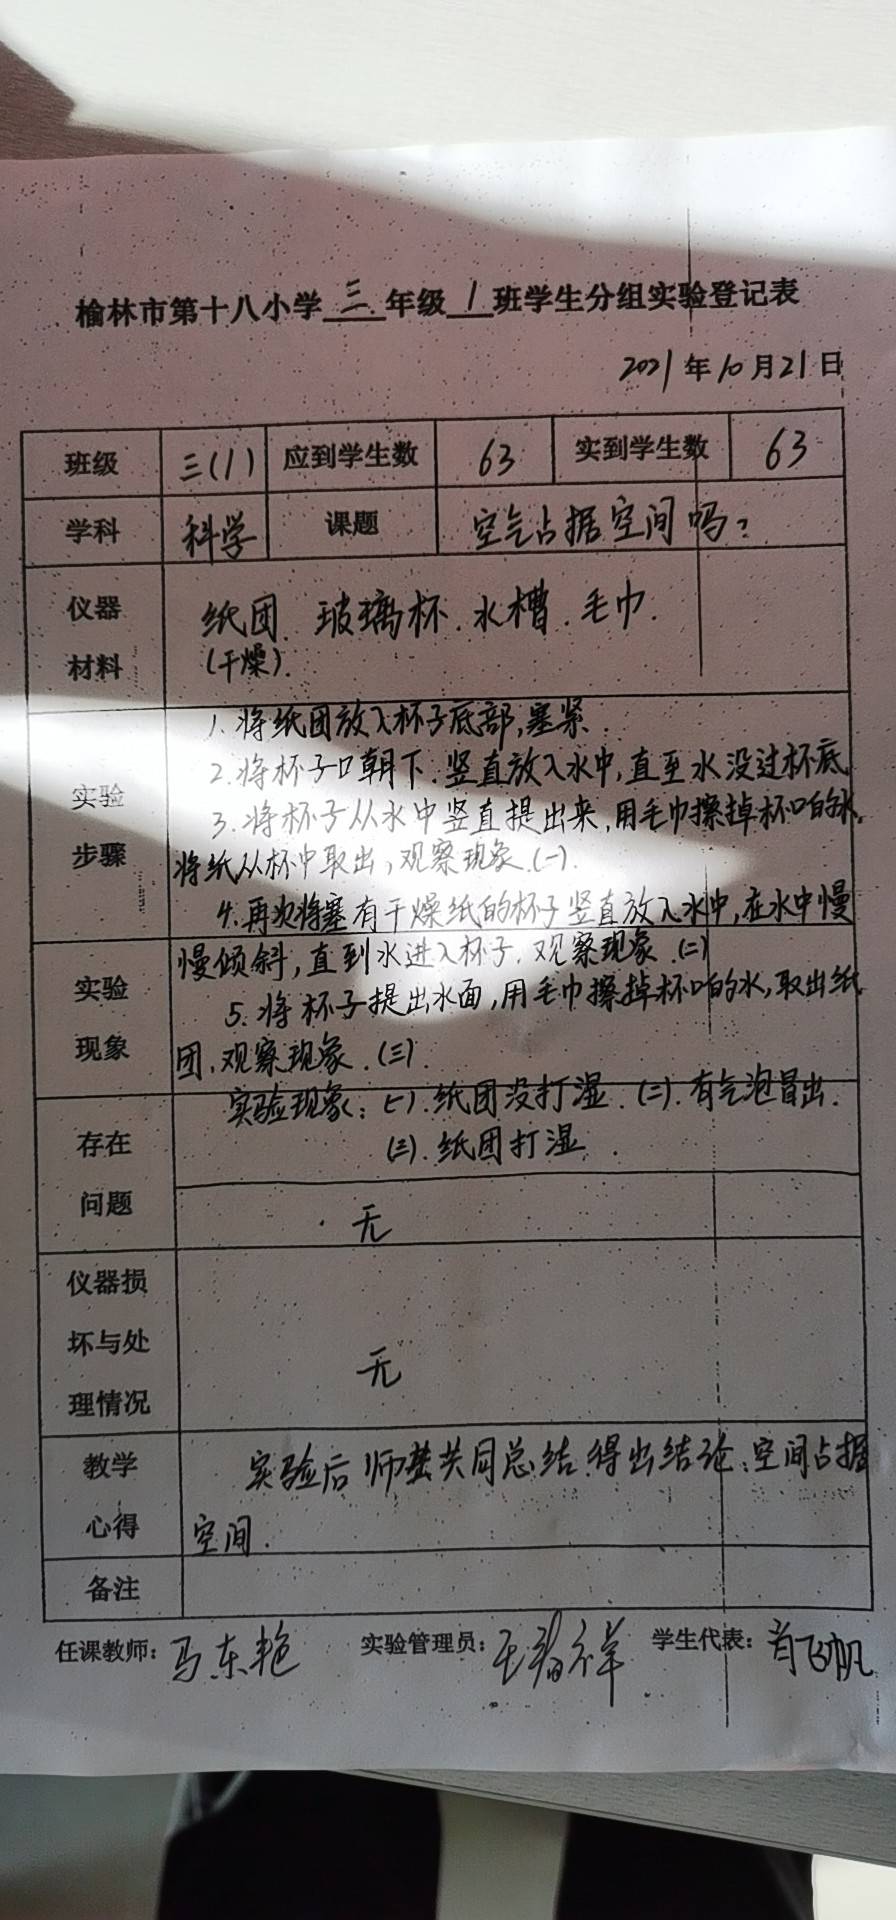 榆林市第十八小学三年级1班学生分组实验登记表
2021年10月21日
班级 三(1) 应到学生数 63 实到学生数 63
学科 科学 课题 空气占据空间吗?
仪器 纸团.玻璃杯.水槽.毛巾.
材料 (干燥).
1.将纸团放入杯子底部,塞紧.
2.将杯子口朝下.竖直放入水中,直至水没过杯底
实验
3.将杯子从水中竖直提出来,用毛巾擦掉杯口的水.
步骤
将纸从杯中取出,观察现象.(一).
4.再次将塞有干燥纸的杯子竖直放入水中,在水中慢
慢倾斜,直到水进入杯子.观察现象.(二)
实验
5.将杯子提出水面,用毛巾擦掉杯口的水,取出纸
现象
团,观察现象.(三).
实验现象:(一).纸团没打湿.(二).有气泡冒出.
存在
(三).纸团打湿.
问题
无
仪器损
坏与处
无
理情况
教学 实验后师生共同总结.得出结论:空间占据
心得 空间.
备注
任课教师:马东艳 实验管理员: 学生代表: